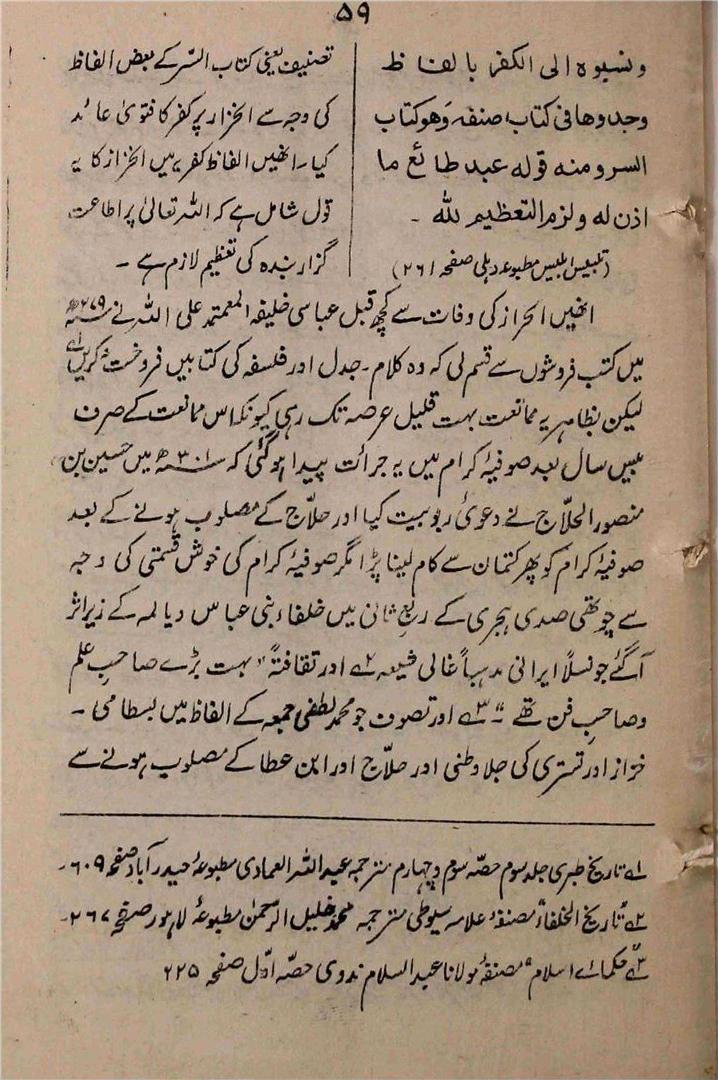 ۵۹
ونسبوہ الی الکفر بالفاظ
وجدوھا فی کتاب صنفہ وھو کتاب
السر ومنہ قولہ عبد طائع ما
اذن لہ ولزم التعظیم للہ ۔
(تلبیس ابلیس مطبوعہ دہلی صفحہ ۲۶۱)
تصنیف یعنی کتاب السّر کے بعض الفاظ
کی وجہ سے الخزار پر کفر کا فتویٰ عائد
کیا۔ انھیں الفاظ کفریہ میں الخزاز کا یہ
قول شامل ہے کہ اللہ تعالیٰ پر اطاعت
گزار بندہ کی تعظیم لازم ہے ۔
انھیں الخراز کی وفات سے کچھ قبل عباسی خلیفہ المعتمد علی اللہ نے ۲۷۹ھ
میں کتب فروشوں سے قسم لی کہ وہ کلام۔ جدل اور فلسفہ کی کتابیں فروخت نہ کریں ۱؎
لیکن بظاہر یہ ممانعت بہت قلیل عرصہ تک رہی کیونکہ اس ممانعت کے صرف
بیس سال بعد صوفیۂ کرام میں یہ جرأت پیدا ہو گئی کہ ۳۰۱ھ میں حسین بن
منصور الحلّاج نے دعویٰ ربوبیت کیا اور حلّاج کے مصلوب ہونے کے بعد
صوفیۂ کرام کو پھر کتمان سے کام لینا پڑا مگر صوفیۂ کرام کی خوش قسمتی کی وجہ
سے چوتھی صدی ہجری کے ربع ثانی میں خلفاء بنی عباس دیالمہ کے زیر اثر
آ گئے جو نسلاً ایرانی مذہباً غالی شیعہ ۲؎ اور ثقافتہً "بہت بڑے صاحبِ علم
و صاحبِ فن تھے" ۳؎ اور تصوف جو محمد لطفی جمعہ کے الفاظ میں بسطامی ۔
خرّاز اور تستری کی جلا وطنی اور حلّاج اور ابن عطا کے مصلوب ہونے سے
۱؎ تاریخ طبری جلد سوم حصّہ سوم و چہارم مترجمہ عبد اللہ العمادی مطبوعۂ حیدر آباد صفحہ ۶۰۹۔
۲؎ "تاریخ الخلفاء" مصنفۂ علامہ سیوطی مترجمہ محمد خلیل الرحمٰن مطبوعۂ لاہور صفحہ ۲۶۷۔
۳؎ "حکمائے اسلام" مصنفۂ مولانا عبد السلام ندوی حصّہ اوّل صفحہ ۲۲۵